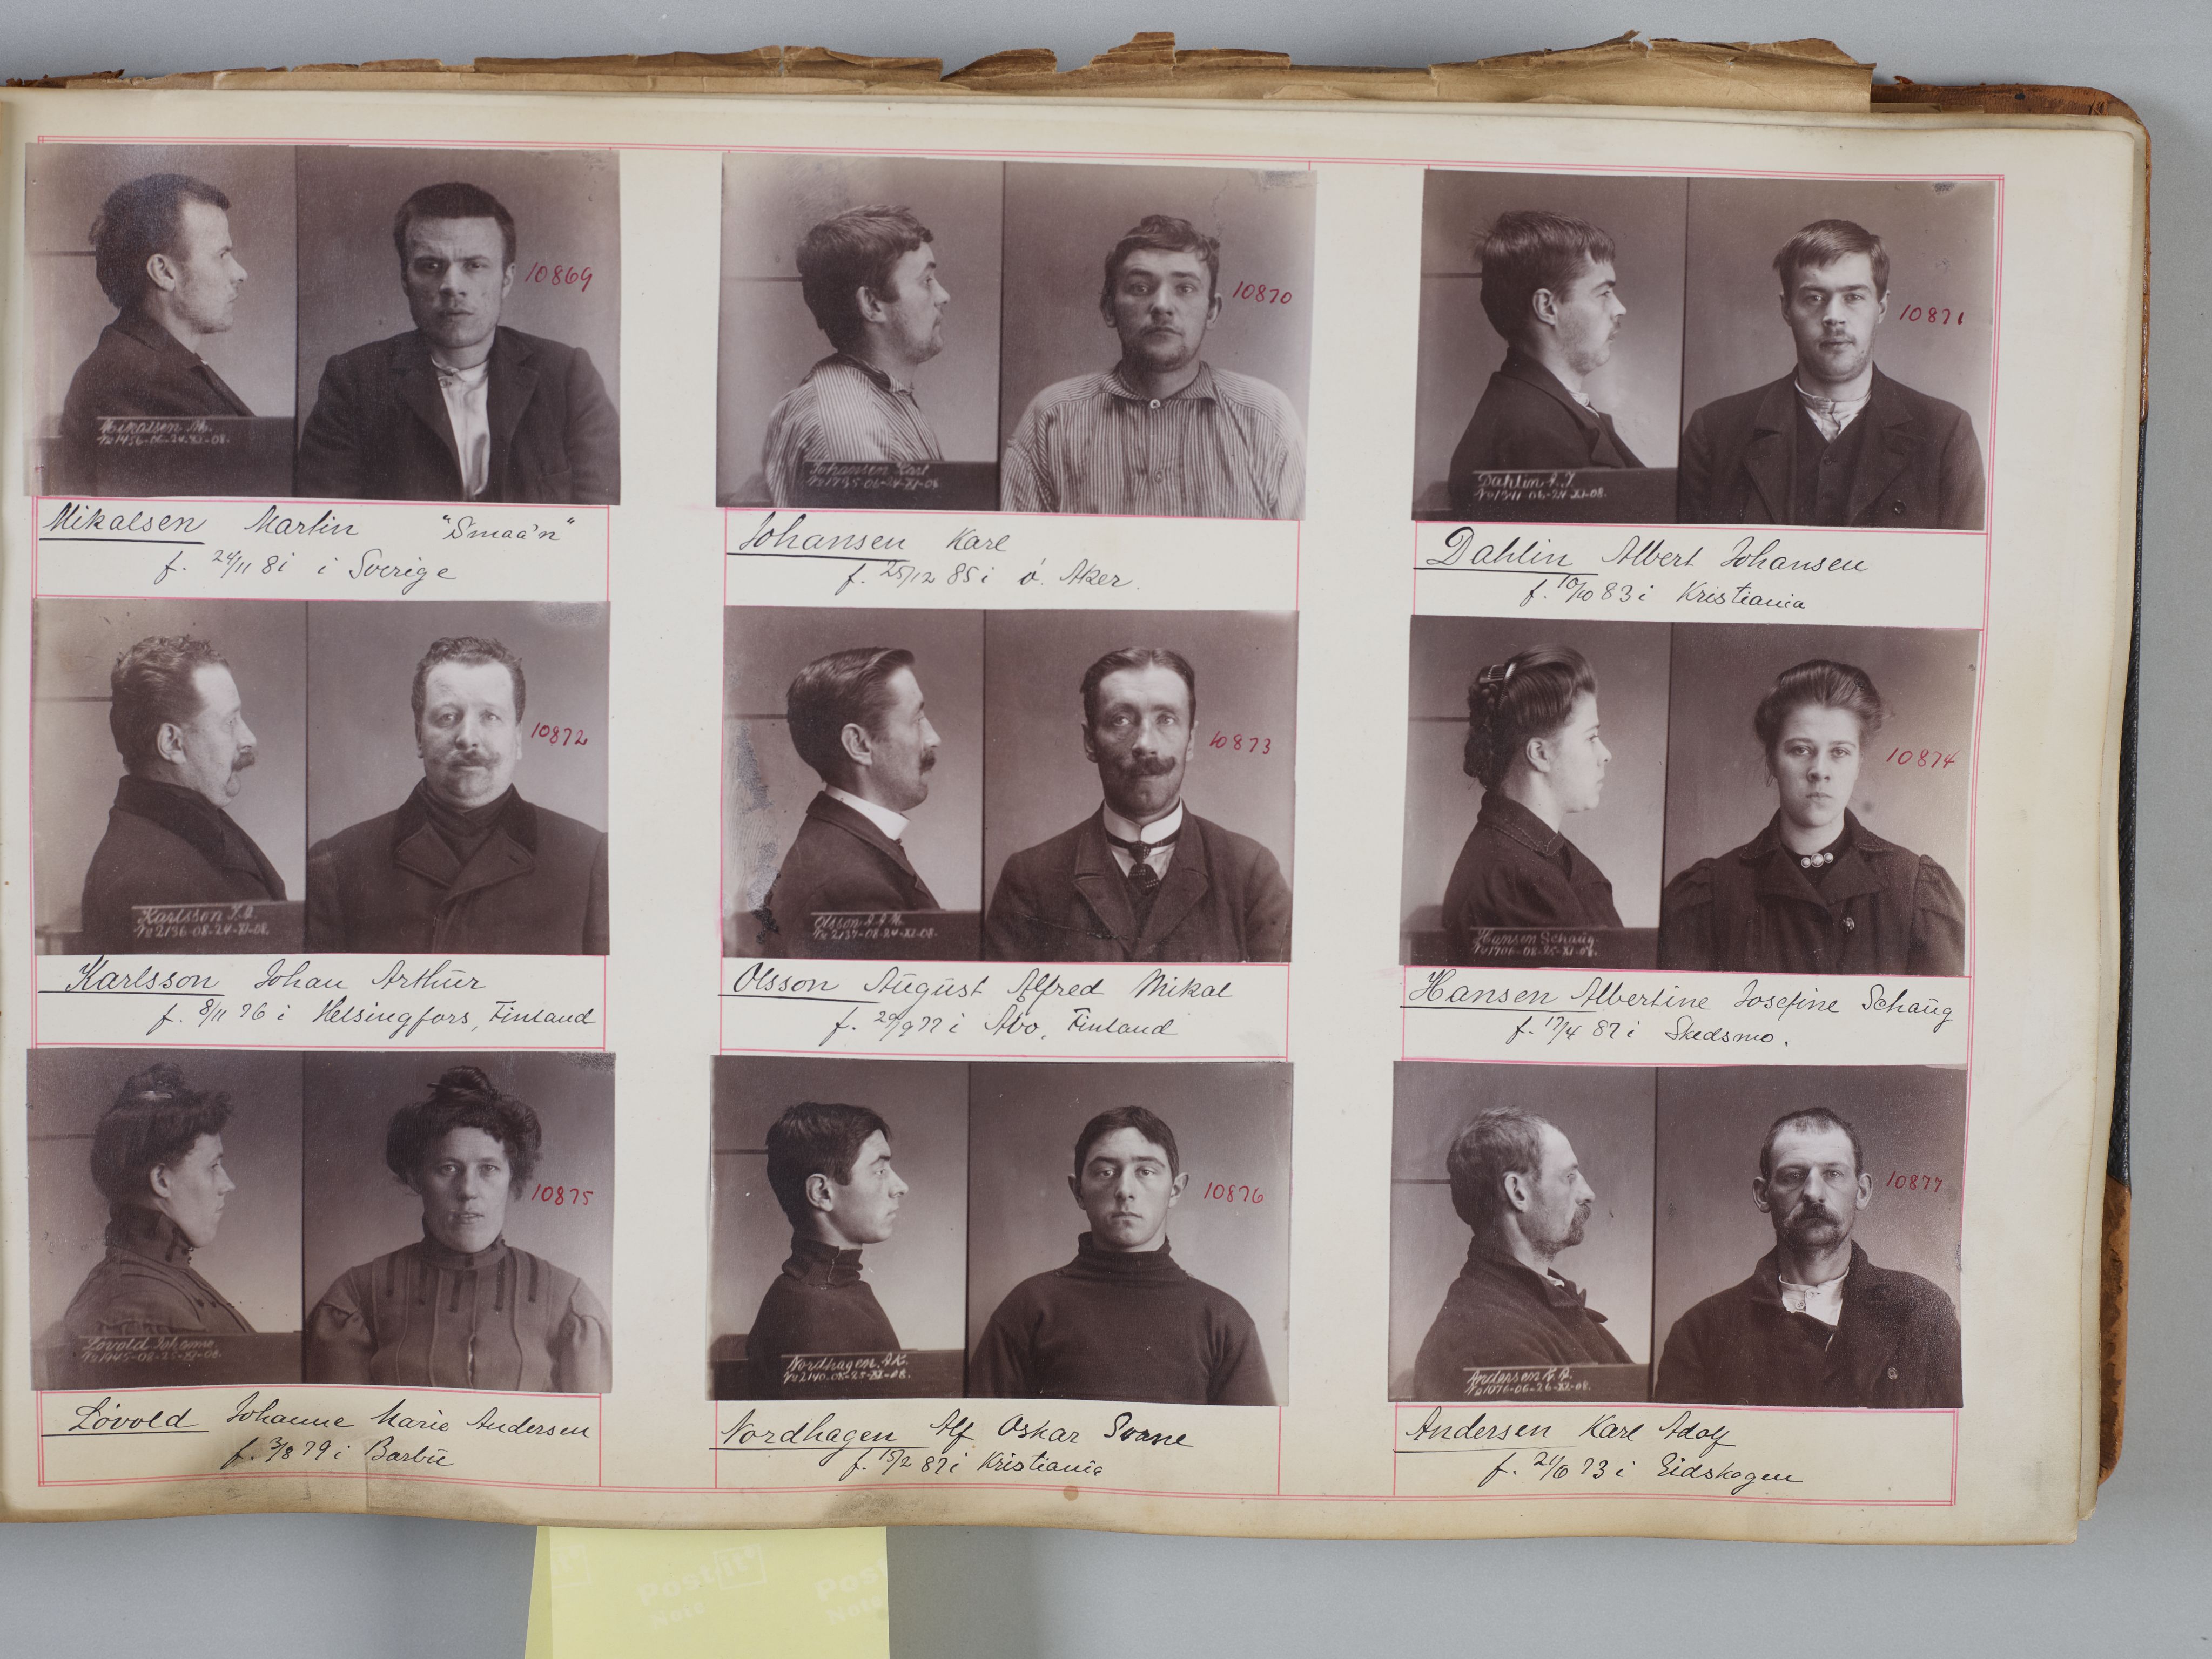 10869
Mikalsen M.
No 1456-06-24-XI-08.
Mikalsen Martin "Smaa'n"
f. 24/11 81 i Sverige
10870
Johansen Karl
No 1735-06-24-XI-08
Johansen Karl
f. 25/12 85 i ö. Aker.
10871
Dahlin A.J.
No 1311-06-24-XI-08.
Dahlin Albert Johansen
f. 10/10 83 i Kristiania
10872
Karlsson J.A.
No 2136-08-24-XI-08.
Karlsson Johan Arthur
f. 8/11 76 i Helsingfors, Finland
10873
Olsson A.A.M.
No 2137-08-24-XI-08.
Olsson August Alfred Mikal
f. 29/9 77 i Åbo, Finland
10874
Hansen Schaug
No 1706-08-25-XI-08.
Hansen Albertine Josefine Schaug
f. 17/4 87 i Skedsmo.
10875
Lövold Johanne
No 1945-08-25-XI-08.
Lövold Johanne Marie Andersen
f. 3/8 79 i Barbu
10876
Nordhagen,
No 2140-08-25-XI-08.
Nordhagen Alf Oskar Svane
f. 15/2 87 i Kristiania
10877
Andersen K.A.
No 1076-06-26-XI-08.
Andersen Karl Adolf
f. 21/6 73 i Eidskogen
Post-it
Note
Post
Note